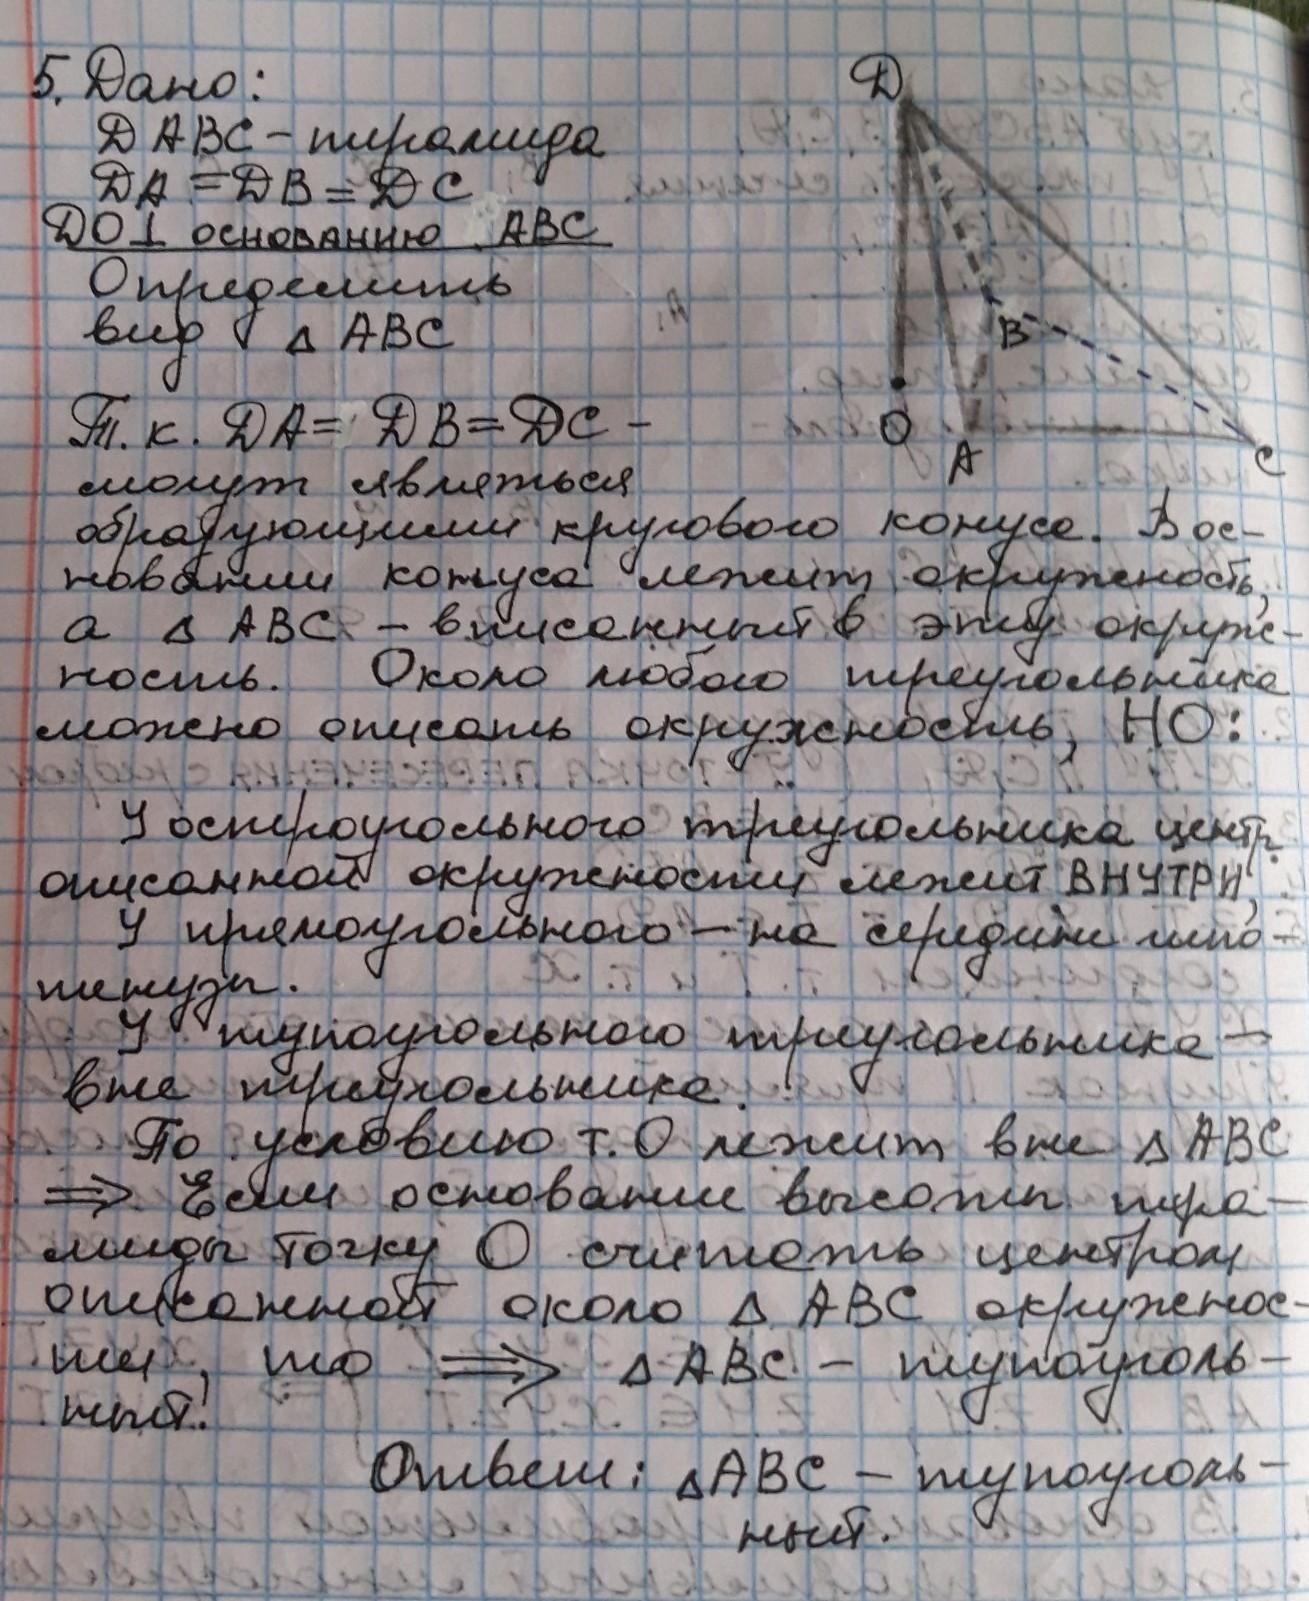 5. Дано:
DABC - пирамида
DA = DB = DC
DO ⊥ основанию ABC
Определить
вид △ ABC
Т.к. DA = DB = DC -
могут являться
образующими кругового конуса. В ос-
новании конуса лежит окружность,
а △ ABC - вписанный в эту окруж-
ность. Около любого треугольника
можно описать окружность, НО:
У остроугольного треугольника центр
описанной окружности лежит ВНУТРИ,
У прямоугольного - на середине гипо-
тенузы.
У тупоугольного треугольника -
вне треугольника.
По условию т. О лежит вне △ ABC
⇒ Если основание высоты пира-
миды точку О считать центром
описанной около △ ABC окружнос-
ти, то ⇒ △ ABC - тупоуголь-
ный!
Ответ: △ ABC - тупоуголь-
ный.
D
B
O
A
C